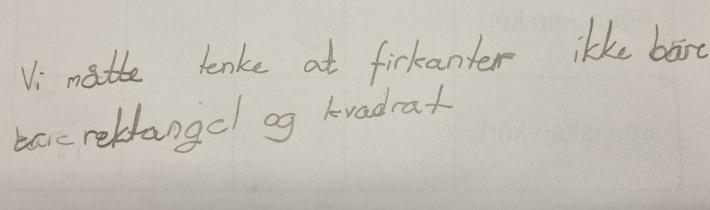 Vi måtte tenke at firkanter ikke bare
bare rektangel og kvadrat